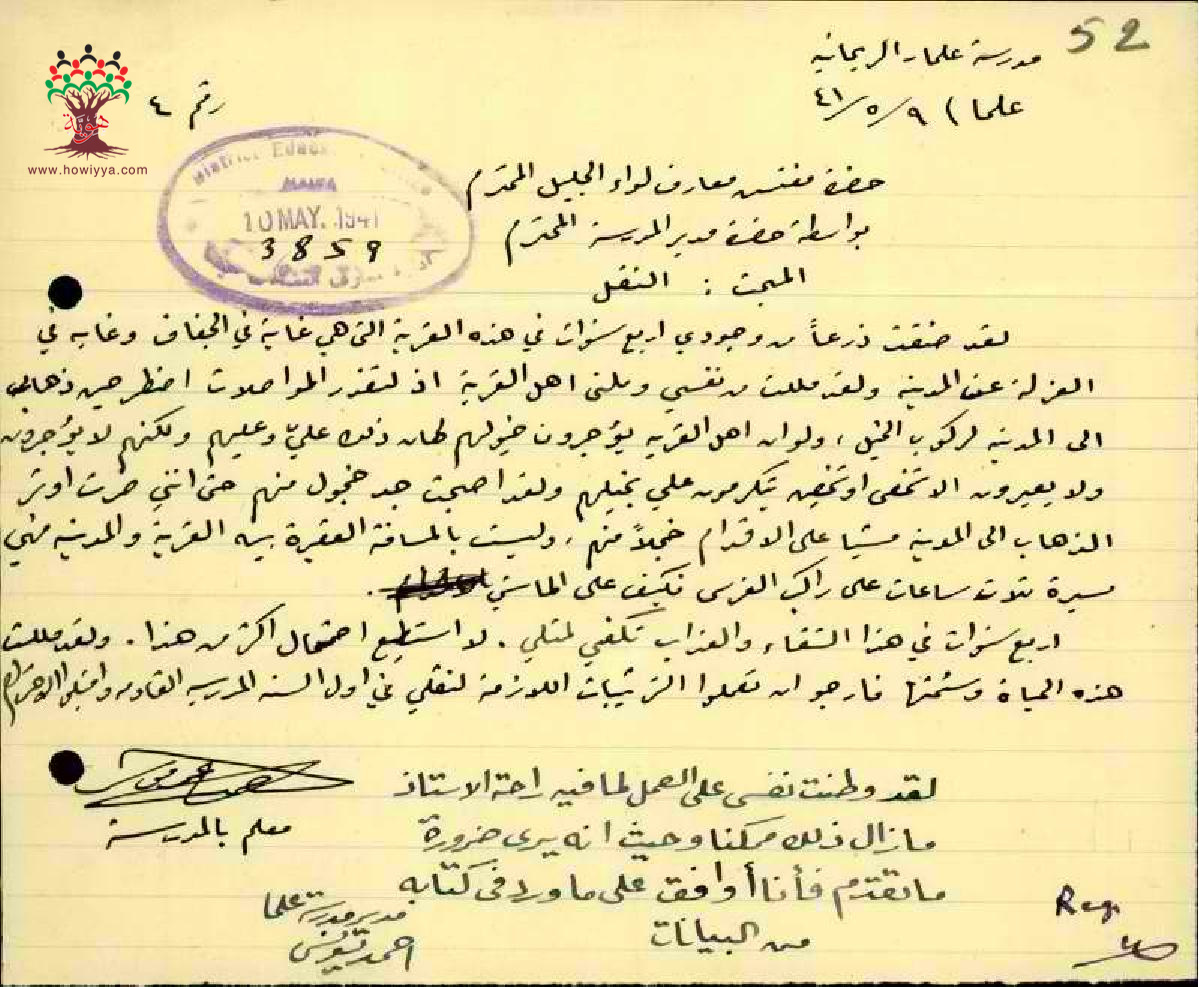 52
مدرسة علما والريحانيه
علما) ٩/٥/٤١
رقم ٤
هوية
www.howiyya.com
District Educ
HAIFA
10 MAY. 1941
3859
حضرة مفتش معارف لواء الجليل المحترم
بواسطة حضرة مدير المدرسة المحترم
المبحث : النقل
لقد ضقت ذرعاً من وجودي اربع سنوات في هذه القرية التي هي غاية في الجفاف وغايه في
العزلة عن المدينه ولقد مللت من نفسي وملني اهل القرية اذ لتعذر المواصلات اضطر حين ذهابي
الى المدينه لركوب الخيل، ولو ان اهل القريه يؤجرون خيولهم لهان ذلك عليّ وعليهم ولكنهم لا يؤجرون
ولا يعيرون الا شخص او شخصين يتكرمون علي بخيلهم ولقد اصبحت جد خجول منهم حتى انني صرت اوثر
الذهاب الى المدينه مشيا على الاقدام خجلاً منهم، وليست بالمسافة القصيرة بين القرية والمدينه فهي
مسيرة ثلاث ساعات على راكب الفرس فكيف على الماشي.
اربع سنوات في هذا الشقاء والعذاب تكفي لمثلي. لا استطيع احتمال اكثر من هذا. ولقد مللت
هذه الحياة وسئمتها فارجو ان تعملوا الترتيبات اللازمة لنقلي في اول السنه المدرسيه القادمه واقبلوا الاحترام
معلم بالمدرسة
لقد وطنت نفسي على العمل لما فيه راحة الاستاذ
ما زال ذلك ممكنا وحيث انه يرى ضرورة
ما تقدم فأنا أوافق على ما ورد في كتابه
من البيانات
مدير مدرسة علما
Reg.